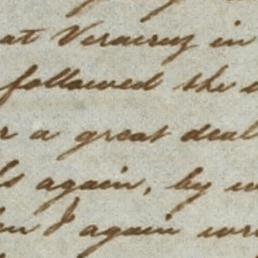 at Veracruz in
followed the
a great deal
again, by
I again